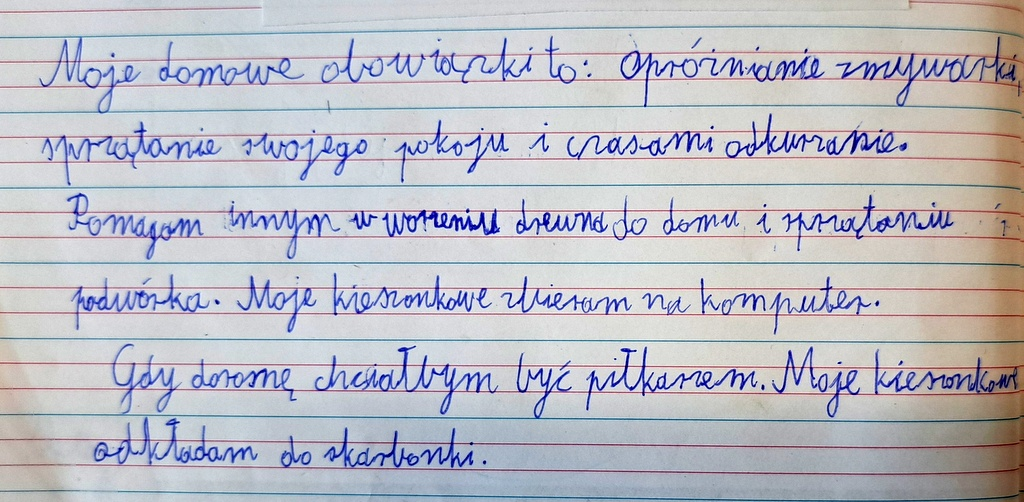 Moje domowe obowiązki to: opróżnianie zmywarki,
sprzątanie swojego pokoju i czasami odkurzanie.
Pomagam innym w wożeniu drewna do domu i sprzątaniu
podwórka. Moje kieszonkowe zbieram na komputer.
Gdy dorosnę chciałbym być piłkarzem. Moje kieszonkowe
odkładam do skarbonki.